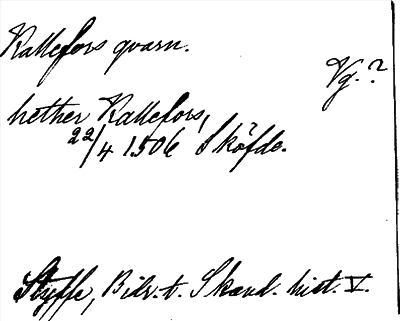 Kallefors qvarn.
Vg.?
hether Kallefors,
22/4 1506 Sköfde.
Styffe, Bidr. t. Skand. hist. V.